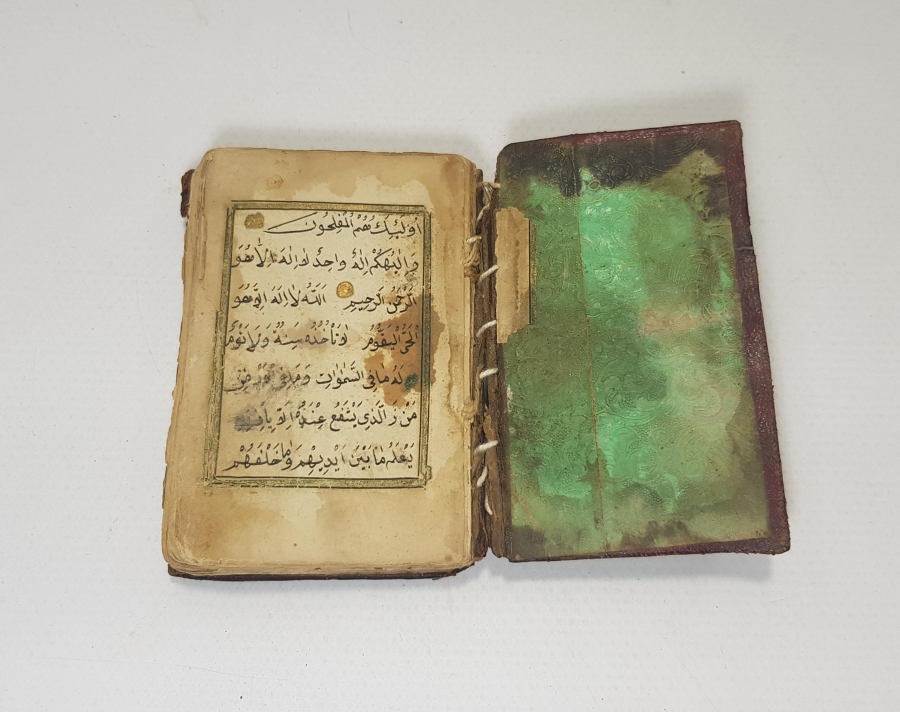 اُولٰئِكَ هُمُ الْمُفْلِحُونَ
وَاِلٰهُكُمْ اِلٰهٌ وَاحِدٌ لَا اِلٰهَ اِلَّا هُوَ
الرَّحْمٰنُ الرَّحِيمِ اَللّٰهُ لَا اِلٰهَ اِلَّا هُوَ
الْحَىُّ الْقَيُّومُ لَا تَأْخُذُهُ سِنَةٌ وَلَا نَوْمٌ
لَهُ مَا فِى السَّمٰوَاتِ وَمَا فِى الْاَرْضِ
مَنْ ذَا الَّذِى يَشْفَعُ عِنْدَهُ اِلَّا بِاِذْنِهِ
يَعْلَمُ مَا بَيْنَ اَيْدِيهِمْ وَمَا خَلْفَهُمْ